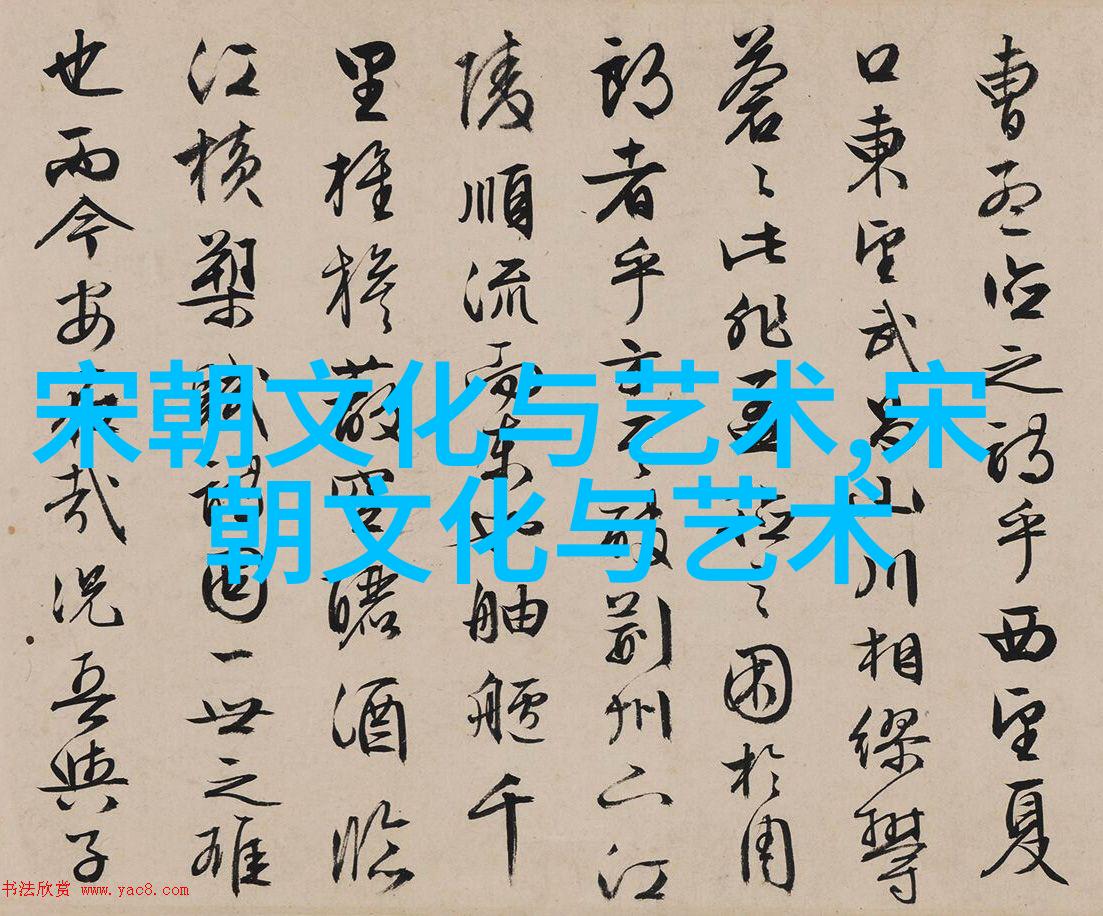 曹孟德之詩乎西望夏
口東望武昌山川相繆鬱
蒼〻此非孟德之困於周
郎者乎方其破荊州下江
陵順流而東也舳艫千
里旌旗蔽空釃酒臨
江橫槊賦詩固一世之雄
也而今安在哉況吾與子
宋朝文化与艺术,宋
朝文化与艺术
书法欣赏 www.yac8.com